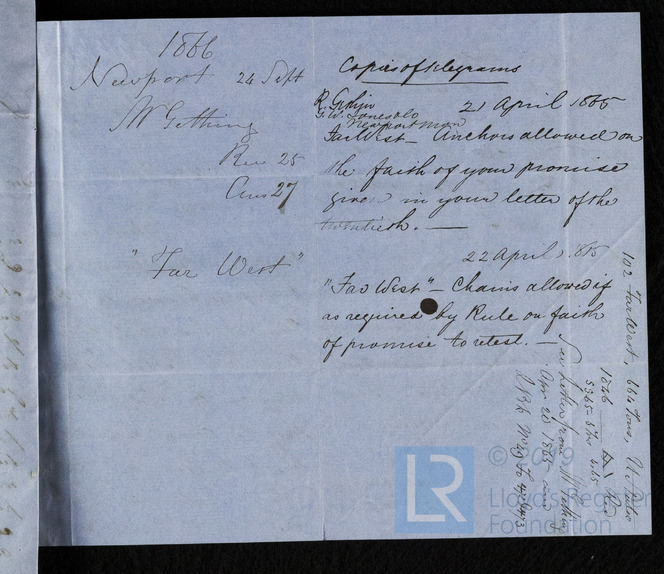 1866
Newport 24 Sept
Mr Gething
Rec 25
Ans 27
"Far West"
Copies of telegrams
21 April 1865
Newport Mon
Far West — Anchors allowed on
the faith of your promise
given in your letter of the
twentieth. —
22 April 1865
"Far West" — Chains allowed if
as required by Rule on faith
of promise to retest. —
102 Far West, 664 Tons,
1846
See letter from
Apr 20 1865 and
© 2019
LR
Lloyd's Register
Foundation